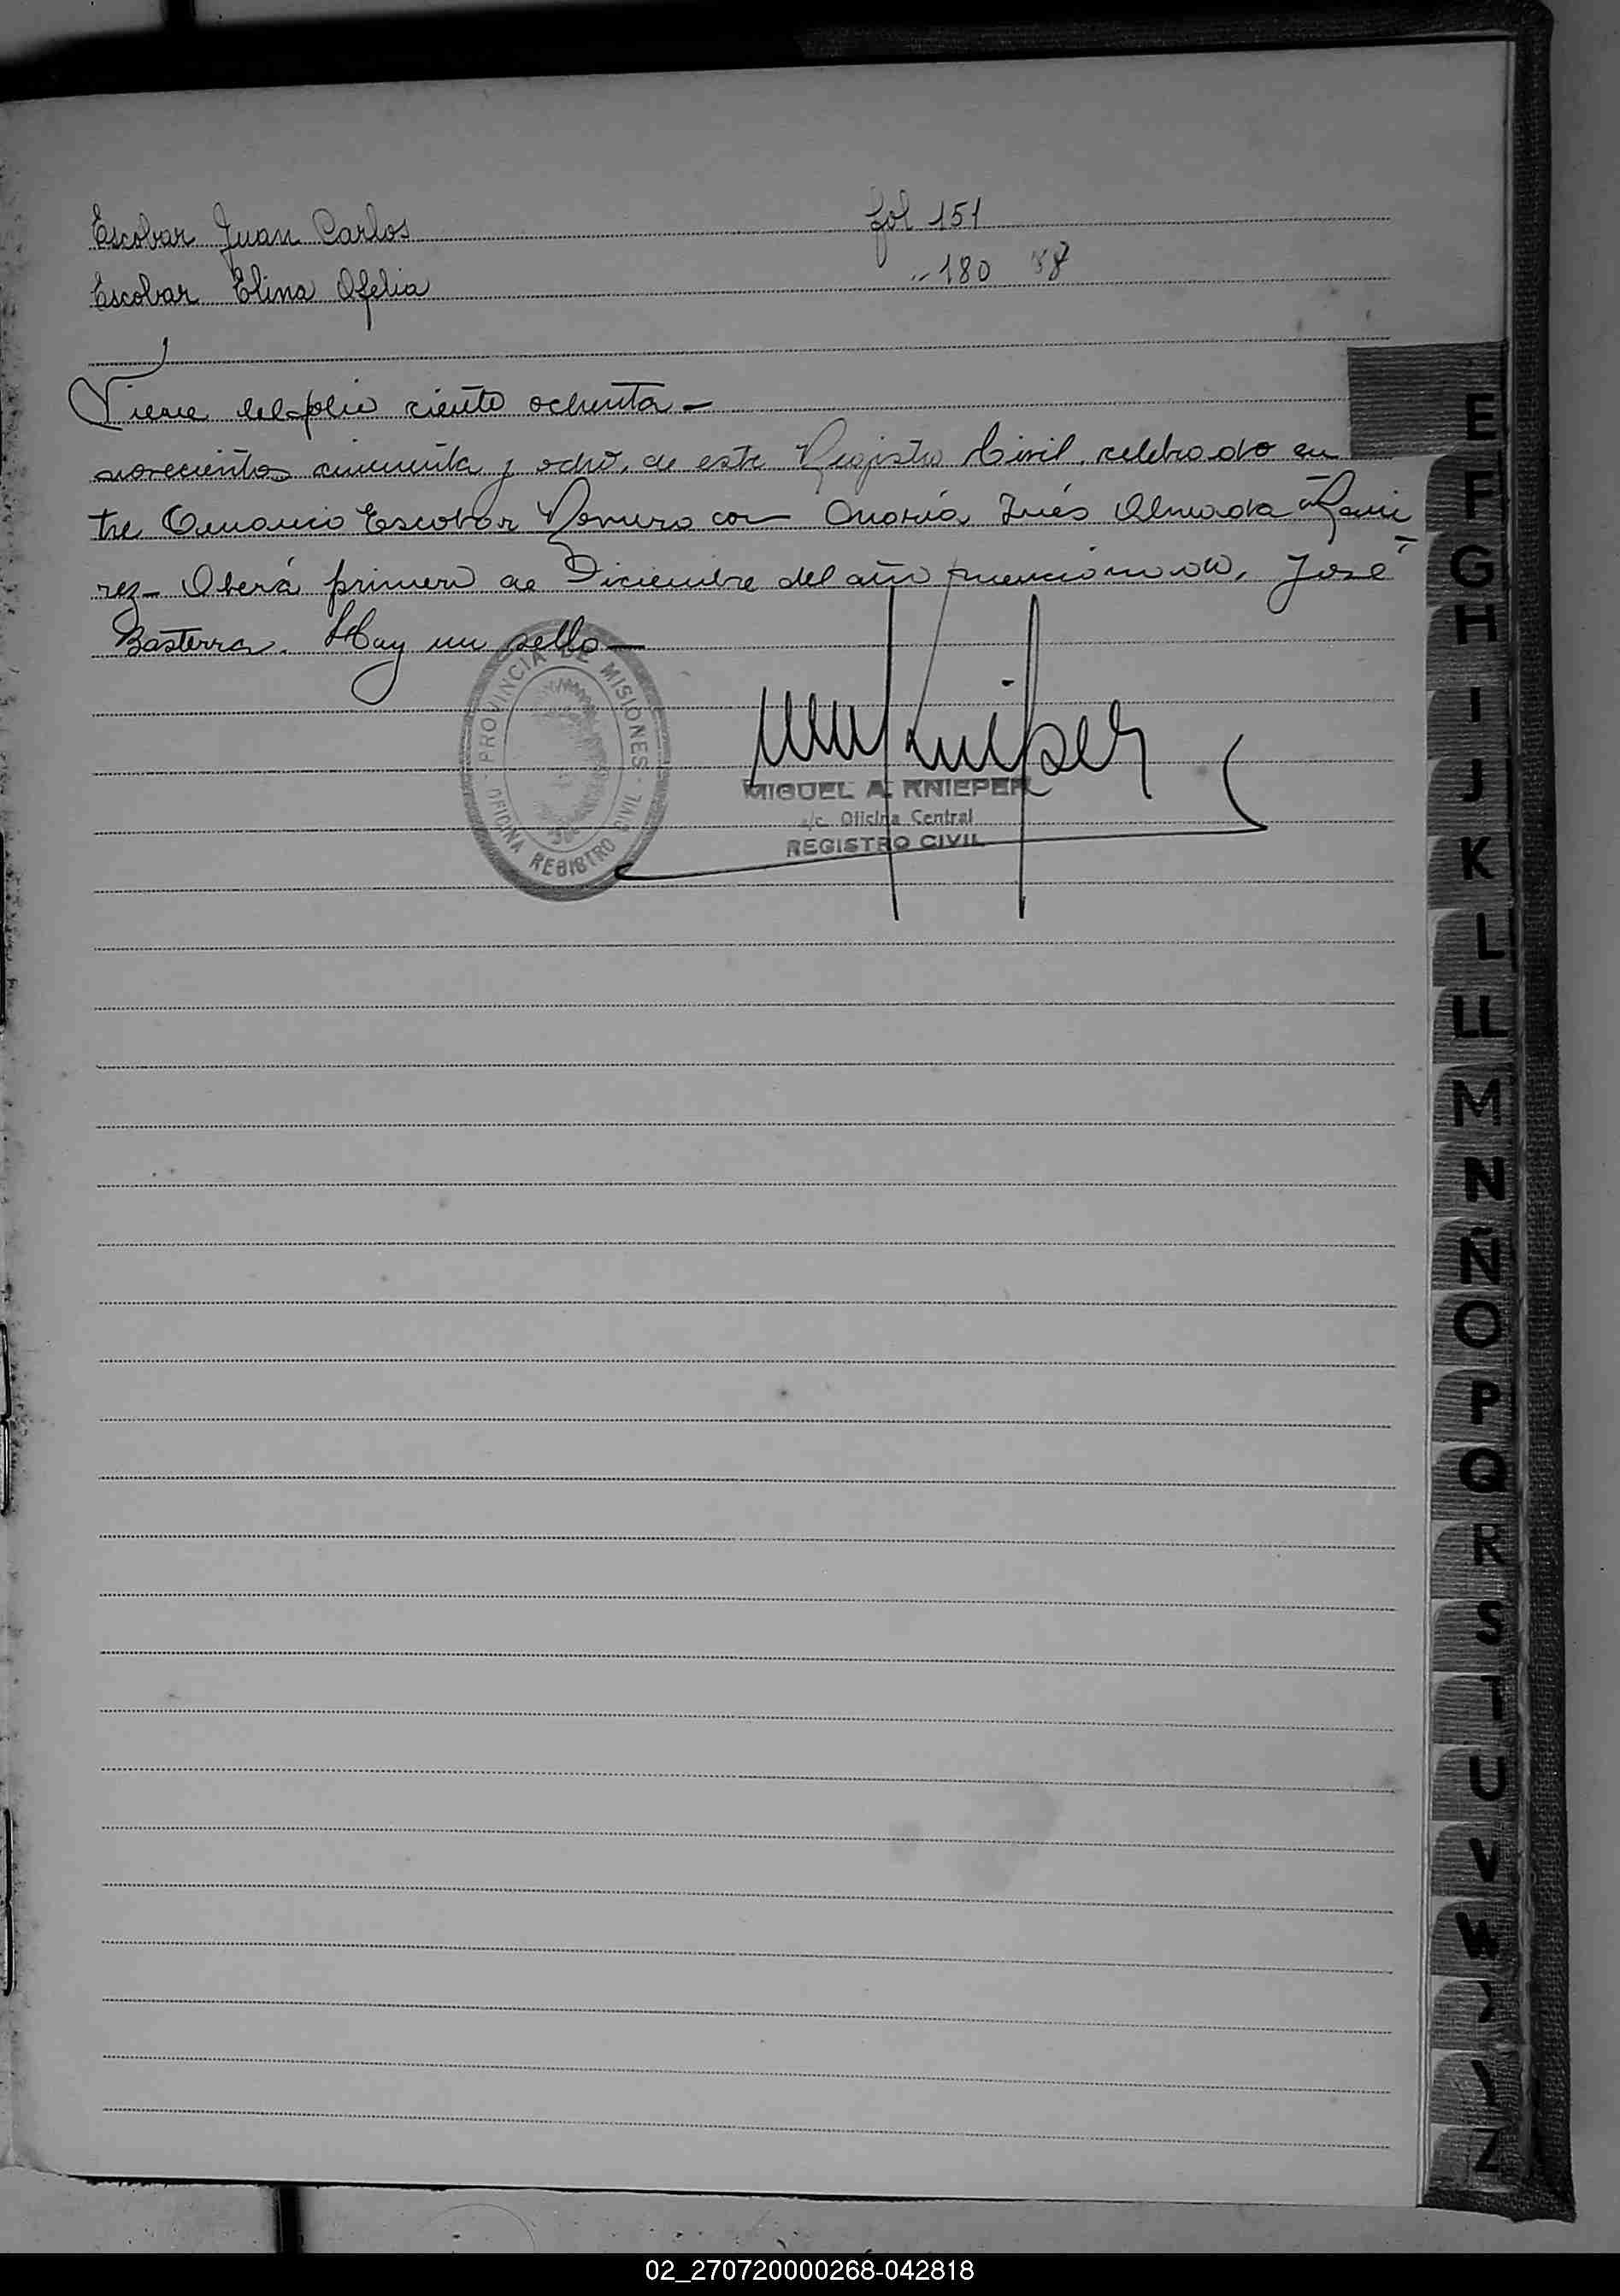 Escobar Juan Carlos fol 151
Escobar Elina Ofelia " 180
Viene del folio ciento ochenta -
novecientos cincuenta y ocho, de este Registro Civil, celebrado en
tre Escobar Romero con María Inés Almada Rami
rez - Oberá primero de Diciembre del año mencionado, José
Basterra. Hay un sello -
PROVINCIA DE MISIONES - OFICINA REGISTRO CIVIL -
MIGUEL A. KNIEPER
a/c. Oficina Central
REGISTRO CIVIL
E
F
G
H
I
J
K
L
LL
M
N
Ñ
O
P
Q
R
S
T
U
V
W
Z
02_270720000268-042818